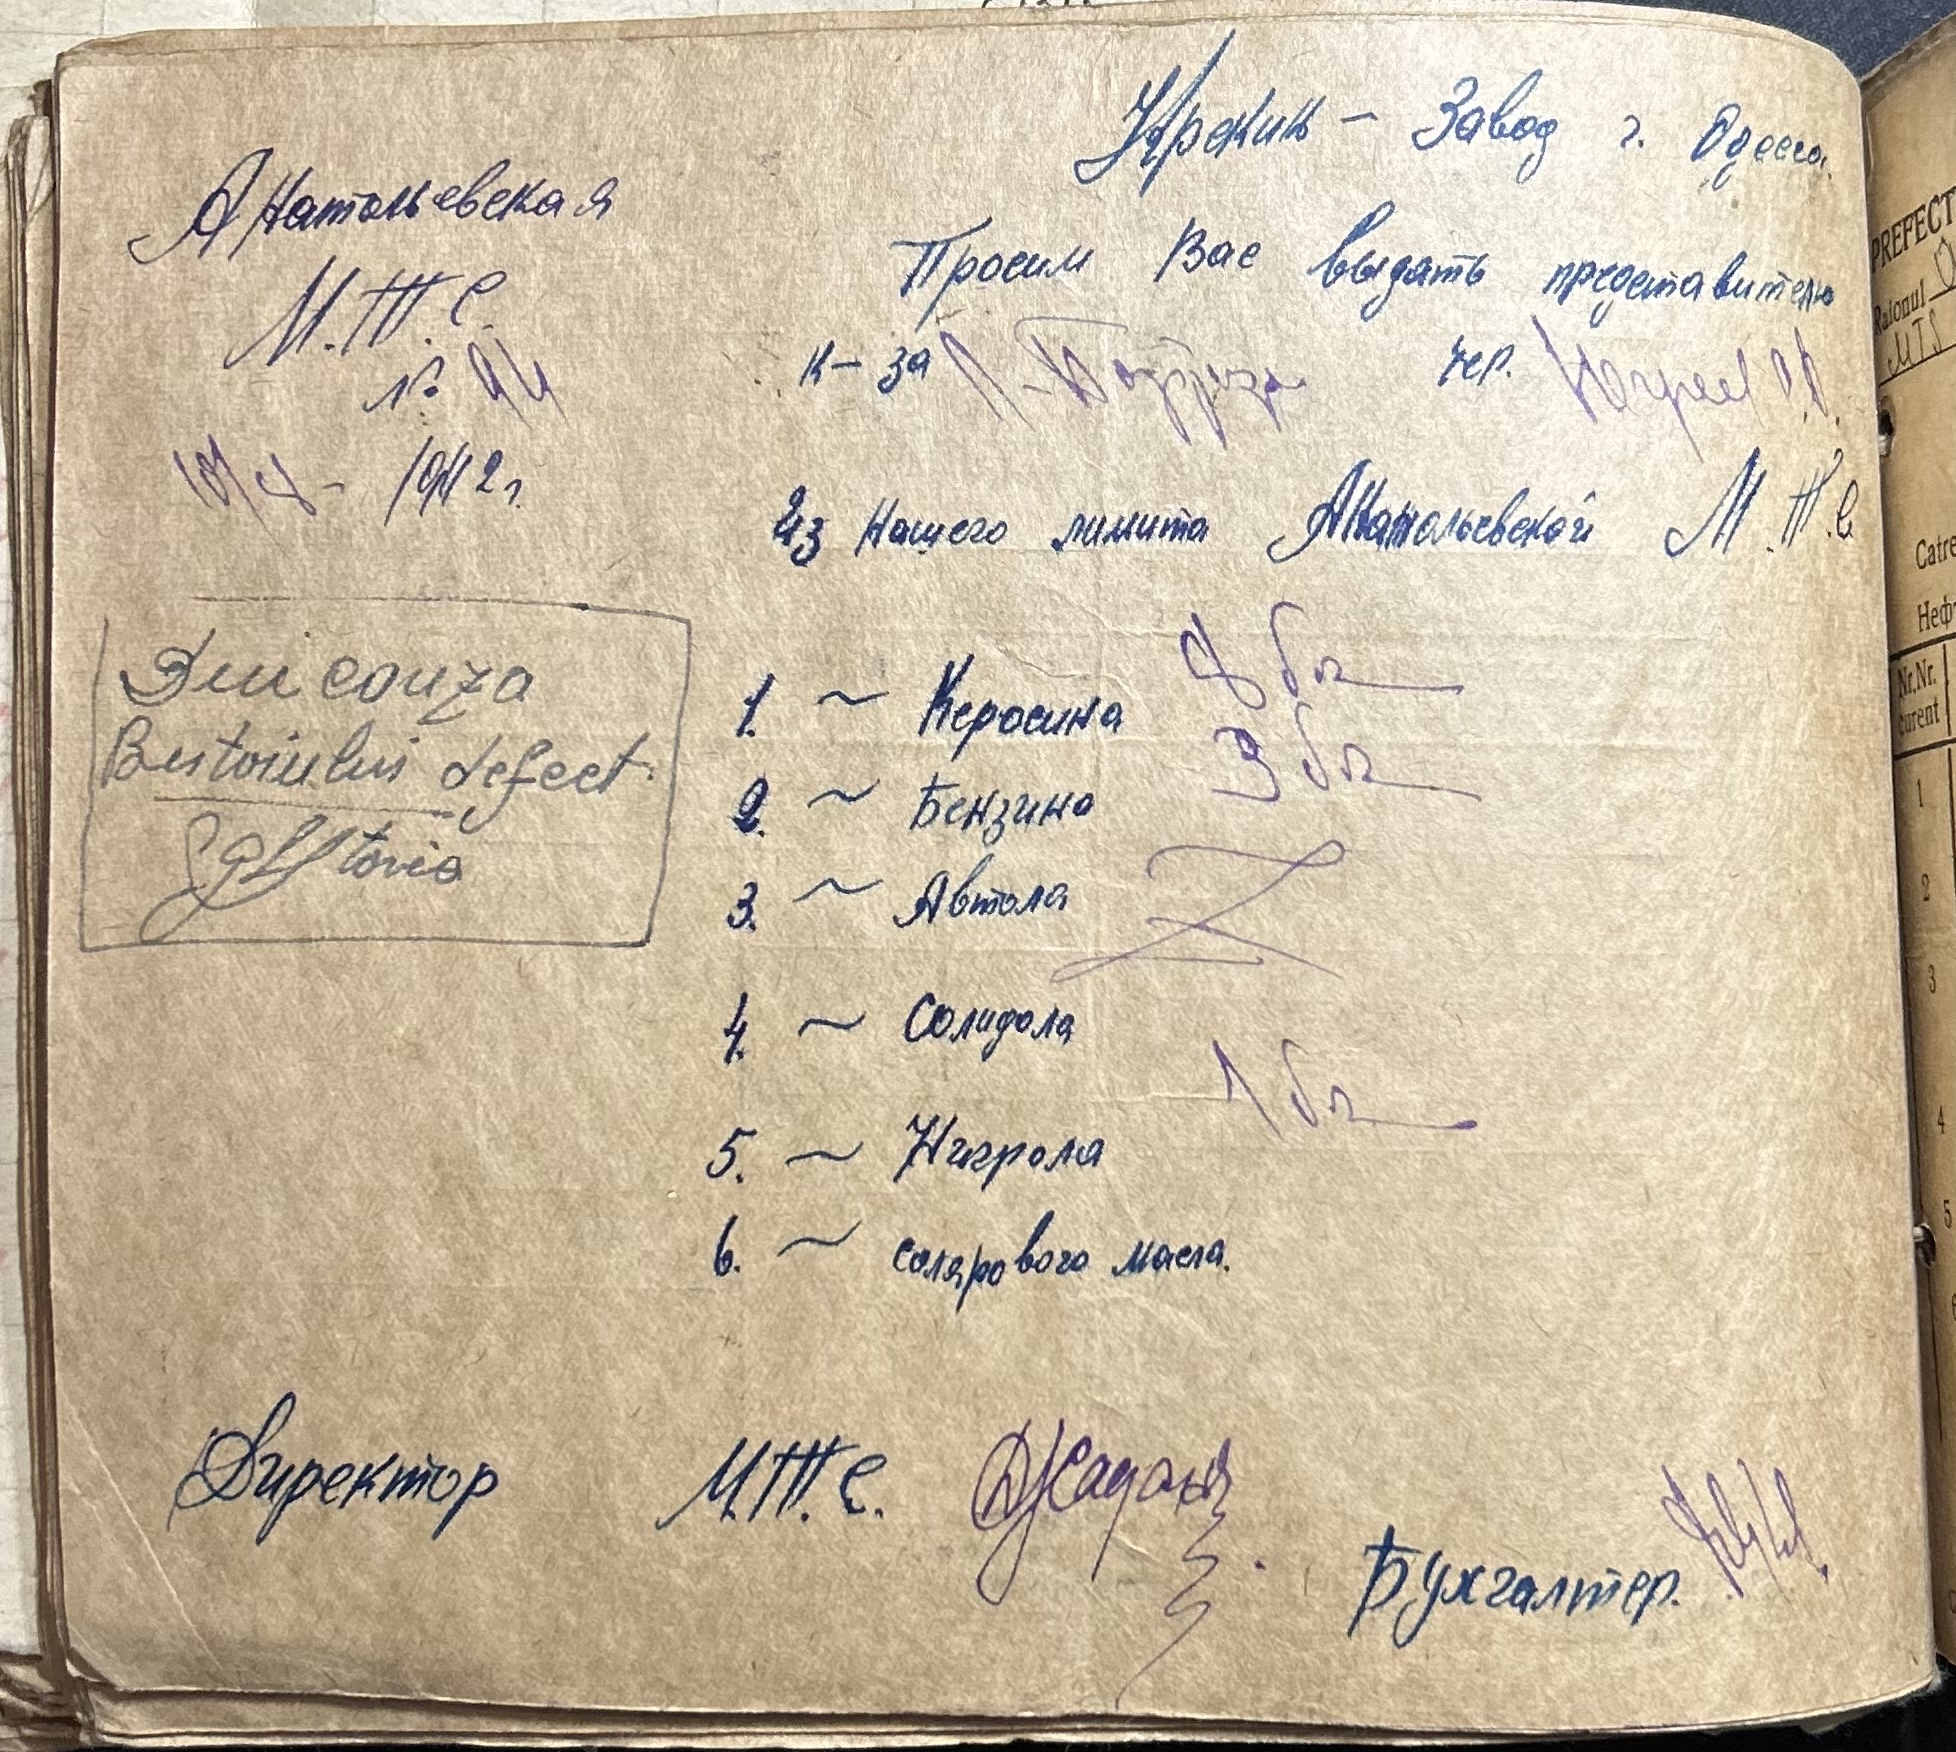 Крекин - Завод г. Одесса.
Анатольевская
М.Т.С.
№ 44
1942 г.
Просим Вас выдать представителю
к-за чер.
Из нашего лимита Анатольевской М.Т.С
1. ~ Керосина 8 бп
2. ~ Бензина 3 бп
3. ~ Автола
4. ~ Солидола
1 бп
5. ~ Нигрола
6. ~ солярового масла.
Din couza
Butoiului defect.
Директор М.Т.С.
Бухгалтер.
PREFECT
Raionul
MTS
Catre
Неф
Nr.Nr.
curent
1
2
3
4
5